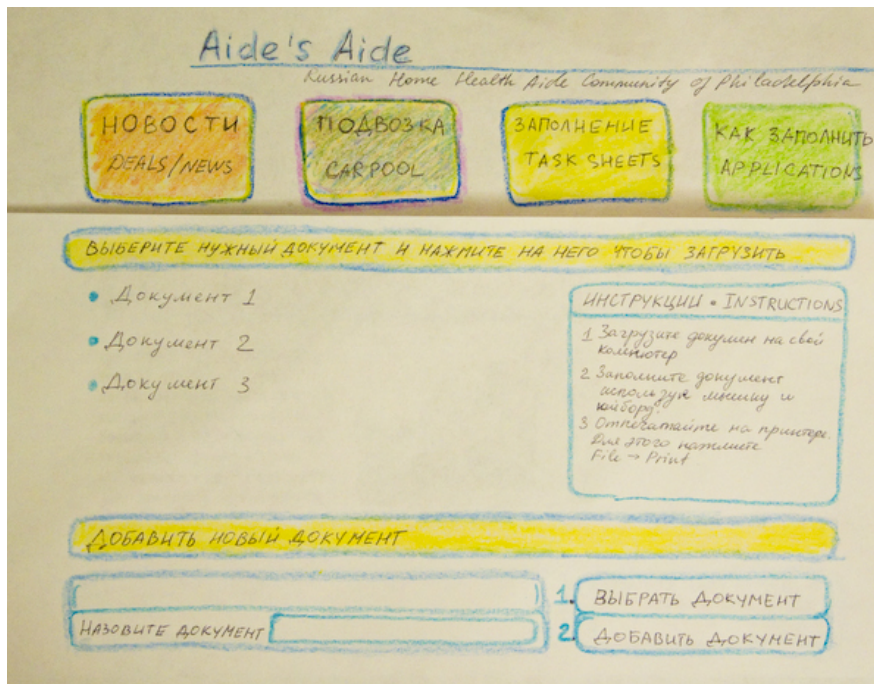 Aide's Aide
Russian Home Health Aide Community of Philadelphia
НОВОСТИ
DEALS/NEWS
ПОДВОЗКА
CARPOOL
ЗАПОЛНЕНИЕ
TASK SHEETS
КАК ЗАПОЛНИТЬ
APPLICATIONS
ВЫБЕРИТЕ НУЖНЫЙ ДОКУМЕНТ И НАЖМИТЕ НА НЕГО ЧТОБЫ ЗАГРУЗИТЬ
• Документ 1
• Документ 2
• Документ 3
ИНСТРУКЦИИ • INSTRUCTIONS
1 Загрузите докумен на свой
компютер
2 Заполните документ
используя мышку и
кийборд.
3 Отпечатайте на принтере.
Для этого нажмите
File → Print
ДОБАВИТЬ НОВЫЙ ДОКУМЕНТ
НАЗОВИТЕ ДОКУМЕНТ
1. ВЫБРАТЬ ДОКУМЕНТ
2. ДОБАВИТЬ ДОКУМЕНТ